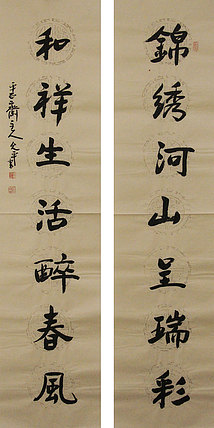 錦綉河山呈瑞彩
和祥生活醉春風